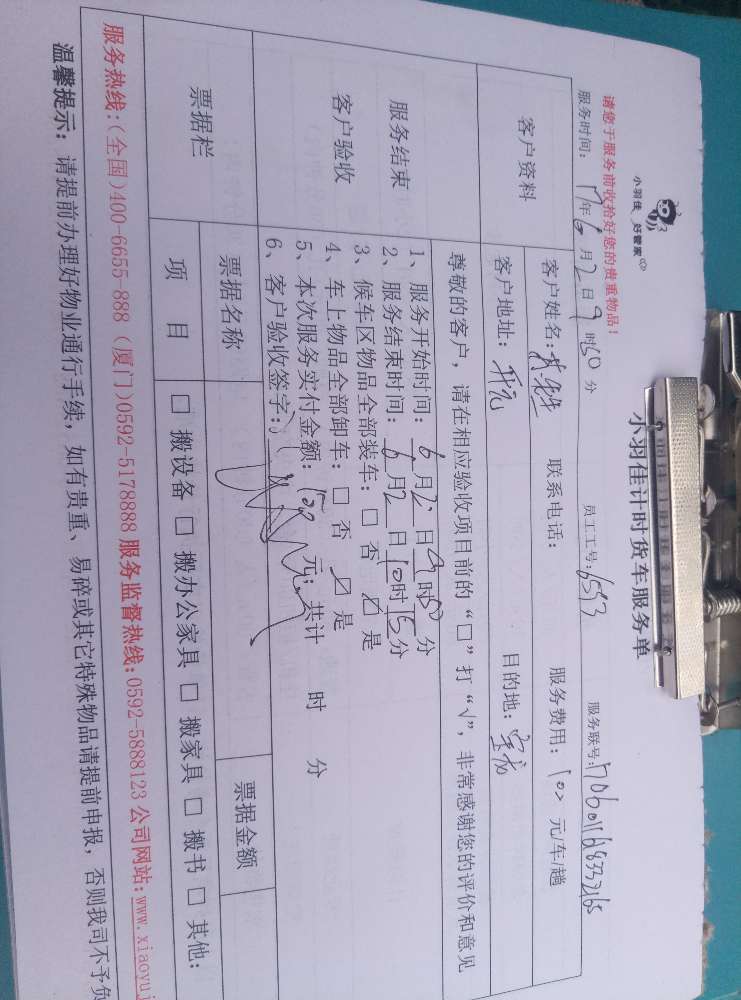 小羽佳 好管家
小羽佳计时货车服务单
请您于服务前收拾好您的贵重物品！
服务时间：17年6月2日9时50分 员工工号：6593 服务联号：
客户资料
客户姓名： 联系电话： 服务费用：100元/车/趟
客户地址：开元 目的地：
服务结束
客户验收
尊敬的客户，请在相应验收项目前的“□”打“√”，非常感谢您的评价和意见
1、服务开始时间：6月2日9时50分
2、服务结束时间：6月2日10时15分
3、候车区物品全部装车：□ 否 ☑ 是
4、车上物品全部卸车：□ 否 ☑ 是
5、本次服务实付金额：100元；共计 时 分
6、客户验收签字：
票据栏
票据名称 票据金额
项 目 □ 搬设备 □ 搬办公家具 □ 搬家具 □ 搬书 □ 其他：
服务热线：(全国)400-6655-888 (厦门)0592-5178888 服务监督热线：0592-5888123 公司网站：www.xiaoyuj
温馨提示：请提前办理好物业通行手续，如有贵重、易碎或其它特殊物品请提前申报，否则我司不予负